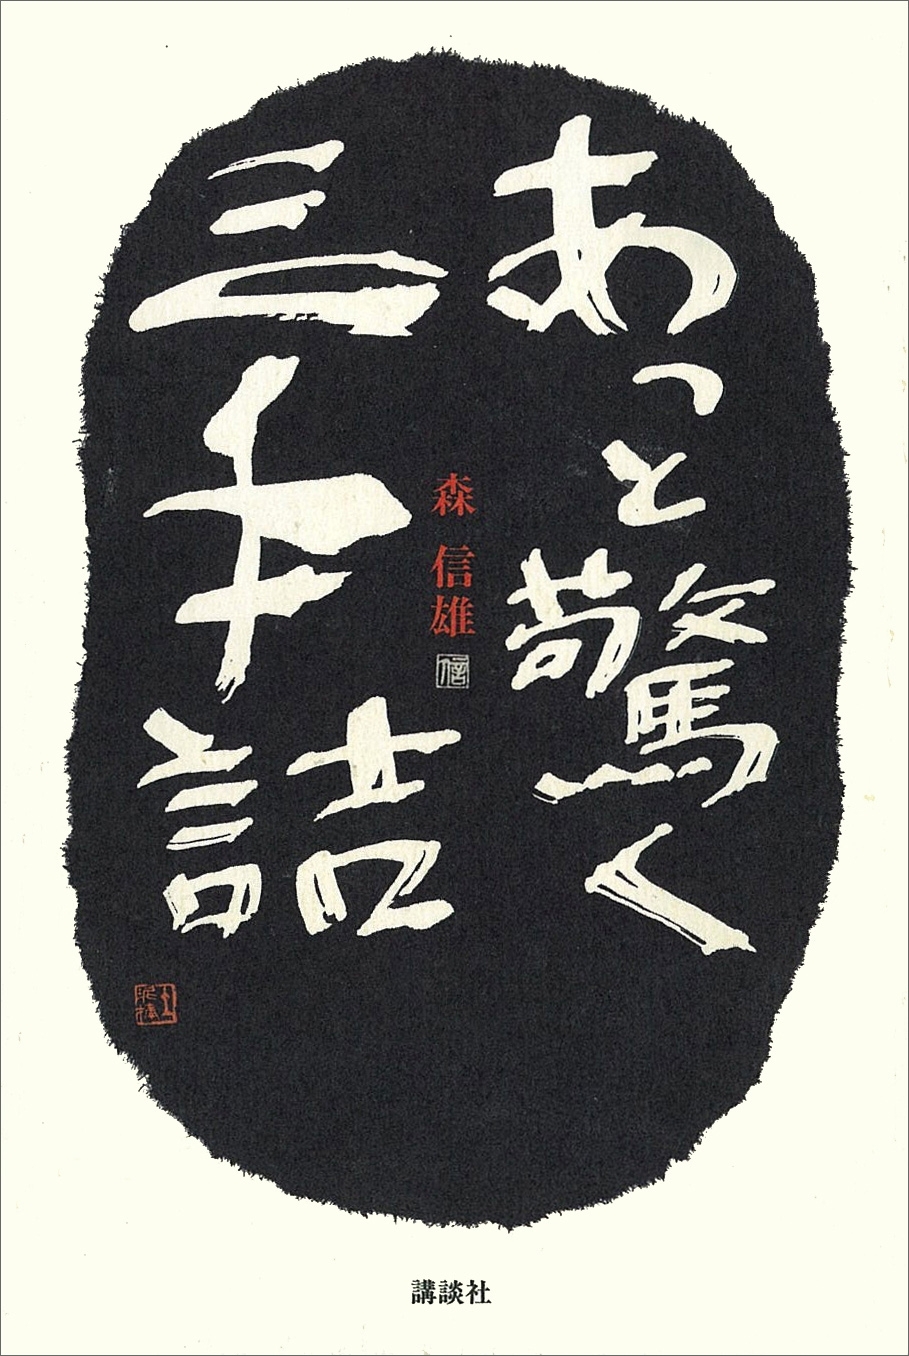 あっと驚く
三手詰
森 信雄
信
講談社